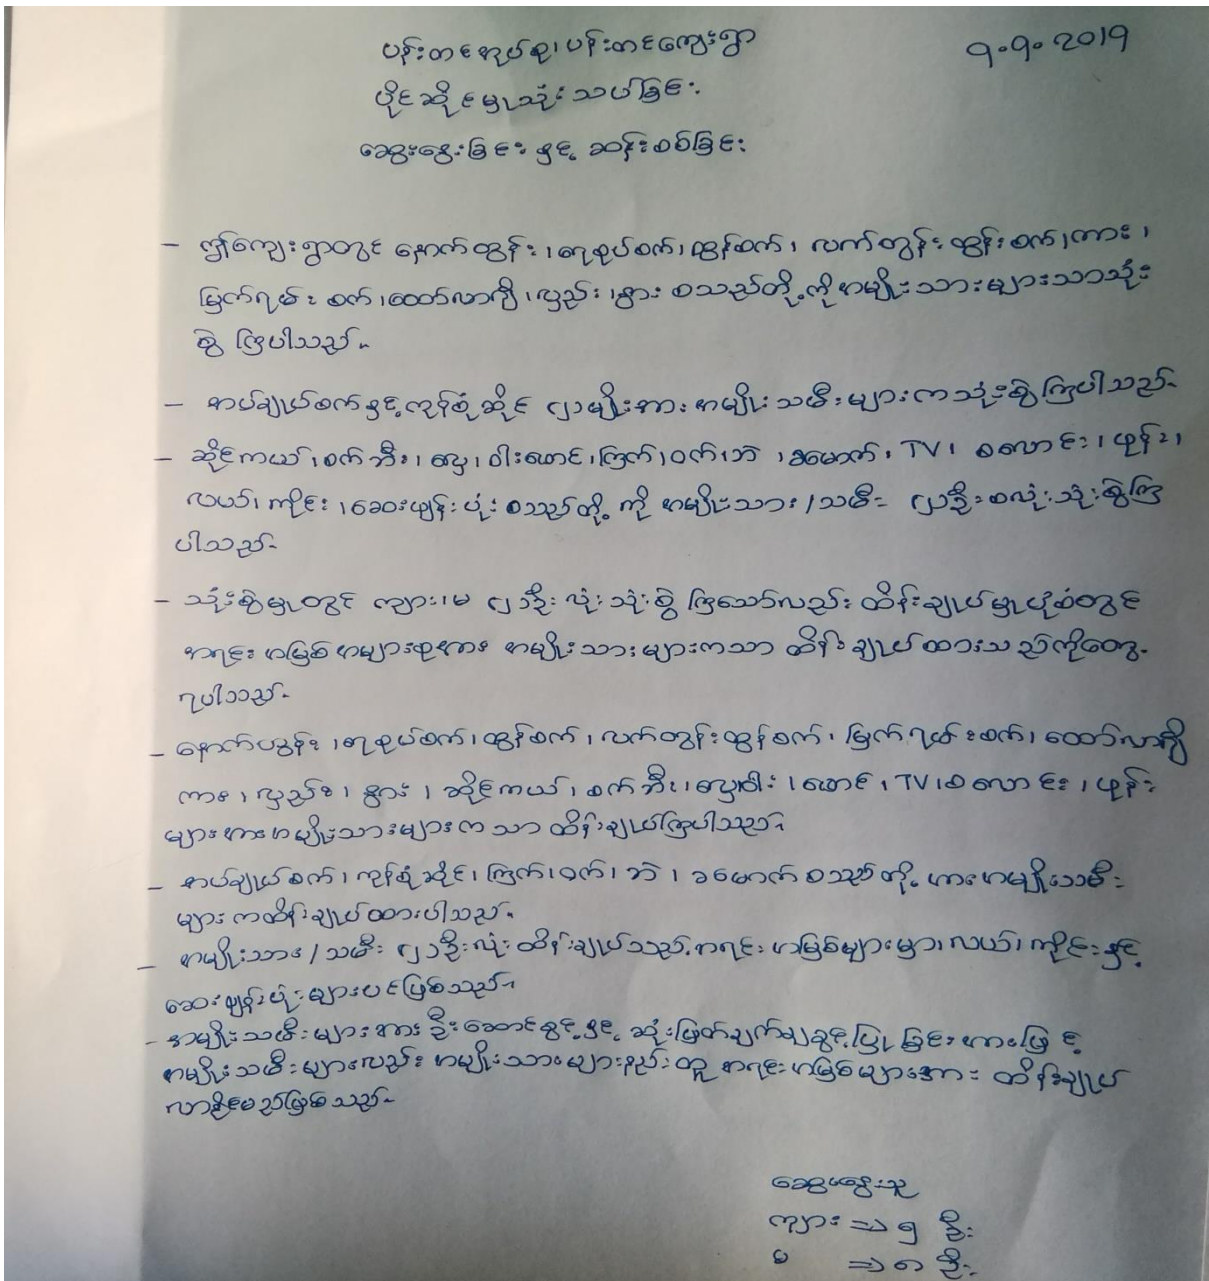 ပန်းတင်အုပ်စု၊ ပန်းတင်ကျေးရွာ
၇.၇.2019
ပိုင်ဆိုင်မှုသုံးသပ်ခြင်း
ဆွေးနွေးခြင်းနှင့် ဆန်းစစ်ခြင်း
– ဤကျေးရွာတွင် နောက်တွန်း၊ ရေစုပ်စက်၊ ထွန်စက်၊ လက်တွန်းထွန်စက်၊ ကား၊
မြက်ရိတ်စက်၊ ထော်လာဂျီ၊ လှည်း၊ နွား စသည်တို့ကို အမျိုးသားများသာသုံး
စွဲကြပါသည်။
– အပ်ချုပ်စက်နှင့် ကုန်စုံဆိုင် ၎အမျိုးအား အမျိုးသမီးများကသုံးစွဲကြပါသည်။
– ဆိုင်ကယ်၊ စက်ဘီး၊ လှေ၊ ဝါးထောင်၊ ကြက်၊ ဝက်၊ ဘဲ၊ ခမောက်၊ TV၊ စလောင်း၊ ဖုန်း၊
လယ်၊ ကိုင်း၊ ဆေးဖျန်းပုံး စသည်တို့ကို အမျိုးသား/သမီး ၂ဦးစလုံးသုံးစွဲကြ
ပါသည်။
– သုံးစွဲမှုတွင် ကျား၊မ ၂ဦးလုံးသုံးစွဲကြသော်လည်း ထိန်းချုပ်မှုပုံစံတွင်
အရင်းအမြစ်အများစုအား အမျိုးသားများကသာ ထိန်းချုပ်ထားသည်ကိုတွေ့
ရပါသည်။
– နောက်တွန်း၊ ရေစုပ်စက်၊ ထွန်စက်၊ လက်တွန်းထွန်စက်၊ မြက်ရိတ်စက်၊ ထော်လာဂျီ
ကား၊ လှည်း၊ နွား၊ ဆိုင်ကယ်၊ စက်ဘီး၊ လှေ၊ ဝါး၊ ထောင်၊ TV၊ စလောင်း၊ ဖုန်း
များအားအမျိုးသားများကသာ ထိန်းချုပ်ကြပါသည်။
– အပ်ချုပ်စက်၊ ကုန်စုံဆိုင်၊ ကြက်၊ ဝက်၊ ဘဲ၊ ခမောက်စသည်တို့အားအမျိုးသမီး
များကထိန်းချုပ်ထားပါသည်။
– အမျိုးသား/သမီး ၂ဦးလုံး ထိန်းချုပ်သည့်အရင်းအမြစ်များမှာ၊ လယ်၊ ကိုင်းနှင့်
ဆေးဖျန်းပုံးများပင်ဖြစ်သည်။
– အမျိုးသမီးများအား ဦးဆောင်ခွင့်နှင့် ဆုံးဖြတ်ချက်ချခွင့်ပြုခြင်းအားဖြင့်
အမျိုးသမီးများလည်း အမျိုးသားများနည်းတူ အရင်းအမြစ်များအား ထိန်းချုပ်
လာနိုင်မည်ဖြစ်သည်။
ဆွေးနွေးသူ
ကျား ⇒ ၅ ဦး
မ ⇒ ၈ ဦး